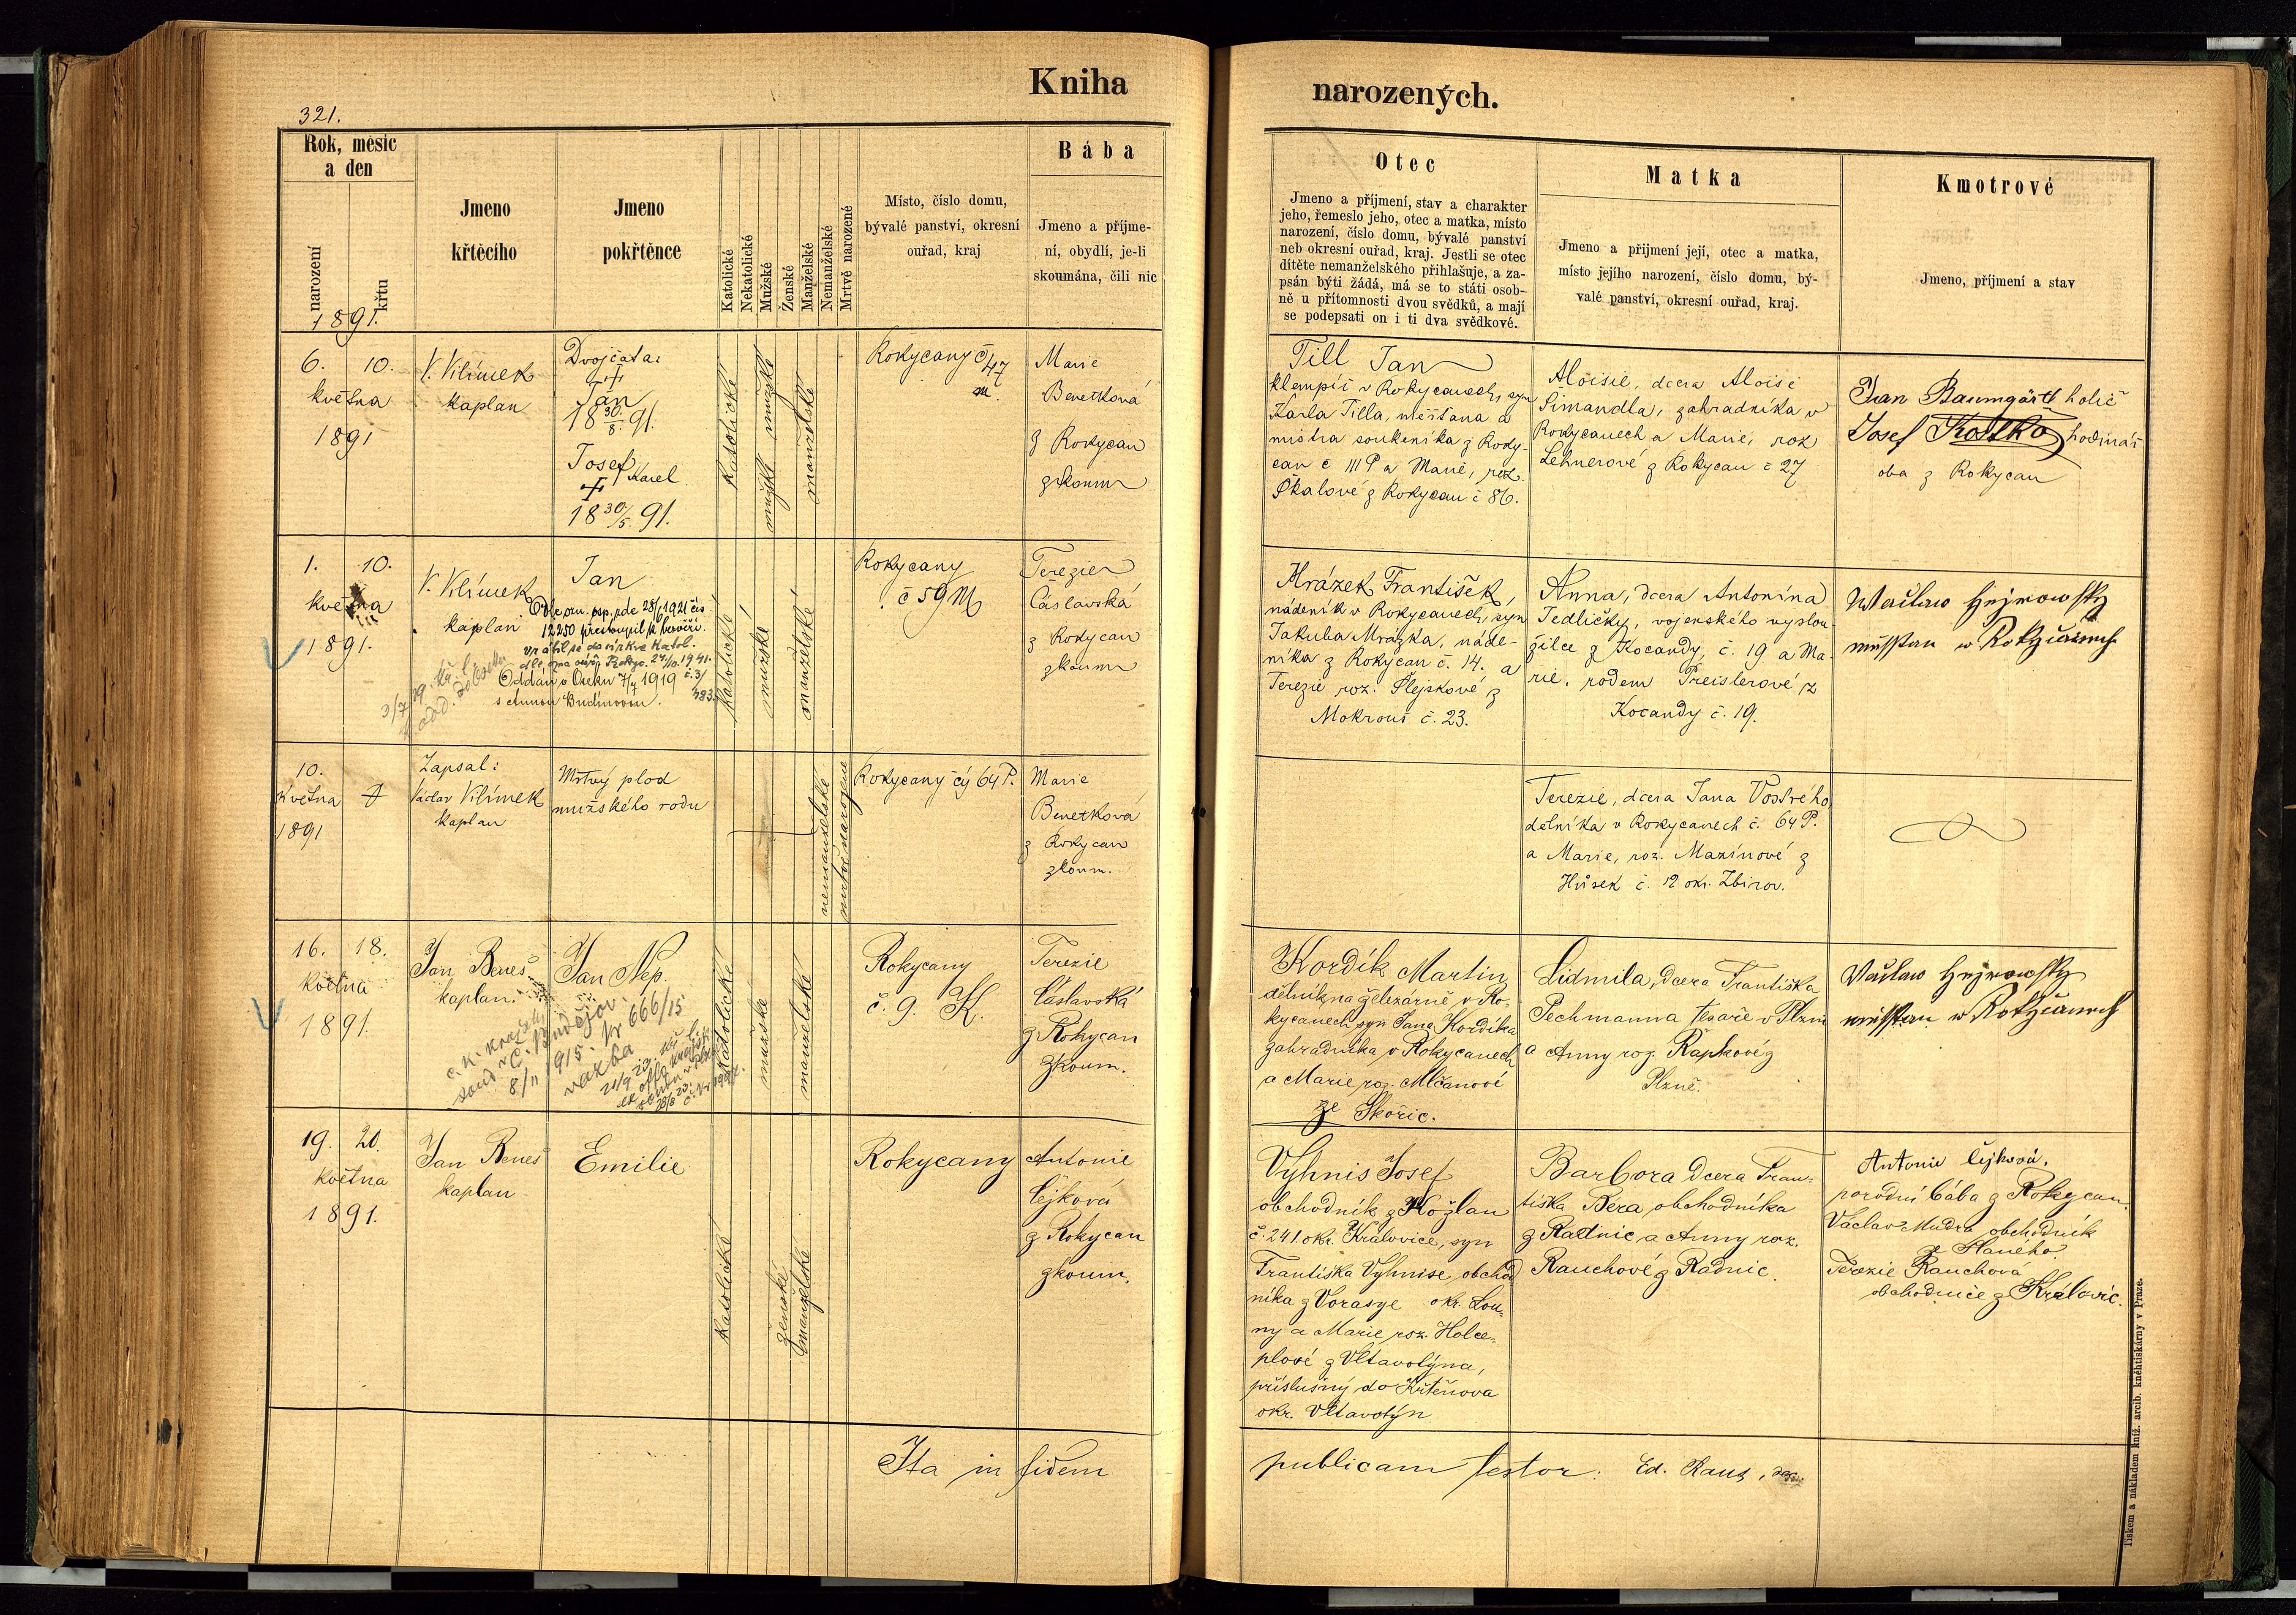 Kniha
narozených.
321.
Rok, měsíc
a den
narození
křtu
Jmeno
křtěcího
Jmeno
pokřtěnce
Katolické
Nekatolické
Mužské
Ženské
Manželské
Nemanželské
Mrtvě narozené
Místo, číslo domu,
bývalé panství, okresní
ouřad, kraj
Bába
Jmeno a příjme-
ní, obydlí, je-li
skoumána, čili nic
Otec
Jmeno a příjmení, stav a charakter
jeho, řemeslo jeho, otec a matka, místo
narození, číslo domu, bývalé panství
neb okresní ouřad, kraj. Jestli se otec
dítěte nemanželského přihlašuje, a za-
psán býti žádá, má se to státi osob-
ně u přítomnosti dvou svědků, a mají
se podepsati on i ti dva svědkové.
Matka
Jmeno a přijmení její, otec a matka,
místo jejího narození, číslo domu, bý-
valé panství, okresní ouřad, kraj.
Kmotrové
Jmeno, příjmení a stav
1891.
6. 10.
května
1891
V. Vilímek
kaplan
Dvojčata:
†
Jan
18 30/8. 91.
Josef Karel
†
18 30/5. 91.
katolické
mužské mužské
manželské
Rokycany č 47
m.
Marie
Benetková
z Rokycan
zkoum
Till Jan
klempíř v Rokycanech, syn
Karla Tilla, měšťana a
mistra soukeníka z Roky-
can č III P a Marie, roz.
Skalové z Rokycan č 86.
Aloisie, dcera Aloise
Šimandla, zahradníka v
Rokycanech a Marie, roz
Lehnerové z Rokycan č 27
Jan Baumgärtl holič
Josef Kostka hodinář
oba z Rokycan
1. 10.
května
1891.
V. Vilímek
kaplan
Jan
12250 přestoupil k bezvěří.
vrátil se do církve katol.
Oddán v Oseku 7/7 1919
s Annou Budínovou.
katolické
mužské
manželské
Rokycany
č 59 M
Terezie
Čáslavská
z Rokycan
zkoum
Mrázek František,
nádeník v Rokycanech, syn
Jakuba Mrázka, náde-
níka z Rokycan č. 14. a
Terezie roz. Šlejskové z
Mokrouš č. 23.
Anna, dcera Antonína
Jedličky, vojenského vyslou-
žilce z Kocandy, č. 19 a Ma-
rie, rodem Preislerové z
Kocandy č. 19.
Waclaw Hejrowský
měsstan w Rokyczanech
10.
května †
1891
Zapsal:
Václav Vilímek
kaplan
Mrtvý plod
mužského rodu
nemanželské
mrtvě narozené
Rokycany čp 64 P.
Marie
Benetková
z Rokycan
zkoum.
Terezie, dcera Jana Vostrého
dělníka v Rokycanech č. 64 P.
a Marie, roz. Mazínové z
Hůrek č. 12 okr. Zbirov.
16. 18.
května
1891.
Jan Beneš
kaplan.
Jan Nep.
c. k. krajský
soud v Č. Budějov.
8/11 1915. Nr 666/15
vazba
katolické
mužské
manželské
Rokycany
č. 9. K.
Terezie
Čáslavská
z Rokycan
zkoum.
Kordík Martin
dělník na železárně v Ro-
kycanech, syn Jana Kordíka
zahradníka v Rokycanech
a Marie roz. Mlčanové
ze Skořic.
Lidmila, dcera Františka
Pechmanna tesaře v Plzni
a Anny roz. Řapkové z
Plzně.
Waclaw Hejrowský
měsstan w Rokyczanech
19. 20.
května
1891.
Jan Beneš
kaplan
Emilie
katolické
ženské
manželské
Rokycany
Antonie
Čejková
z Rokycan
zkoum.
Vyhnis Josef
obchodník z Kožlan
č. 241. okr. Kralovice, syn
Františka Vyhnise, obchod
níka z Vorasye okr. Lou-
ny a Marie roz. Holce-
plové z Vltavotýna,
příslušný do Křtěnova
okr. Vltavotýn
Barbora dcera Fran-
tiška Bera obchodníka
z Radnic a Anny roz.
Rauchové z Radnic.
Antonie Čejková,
porodní bába z Rokycan.
Václav Mudra obchodník
z Slaného.
Terezie Rauchová
obchodnice z Kralovic.
Ita in fidem publicam testor: Ed. Raus,
Tiskem a nákladem kníž. arcib. kněhtiskárny v Praze.